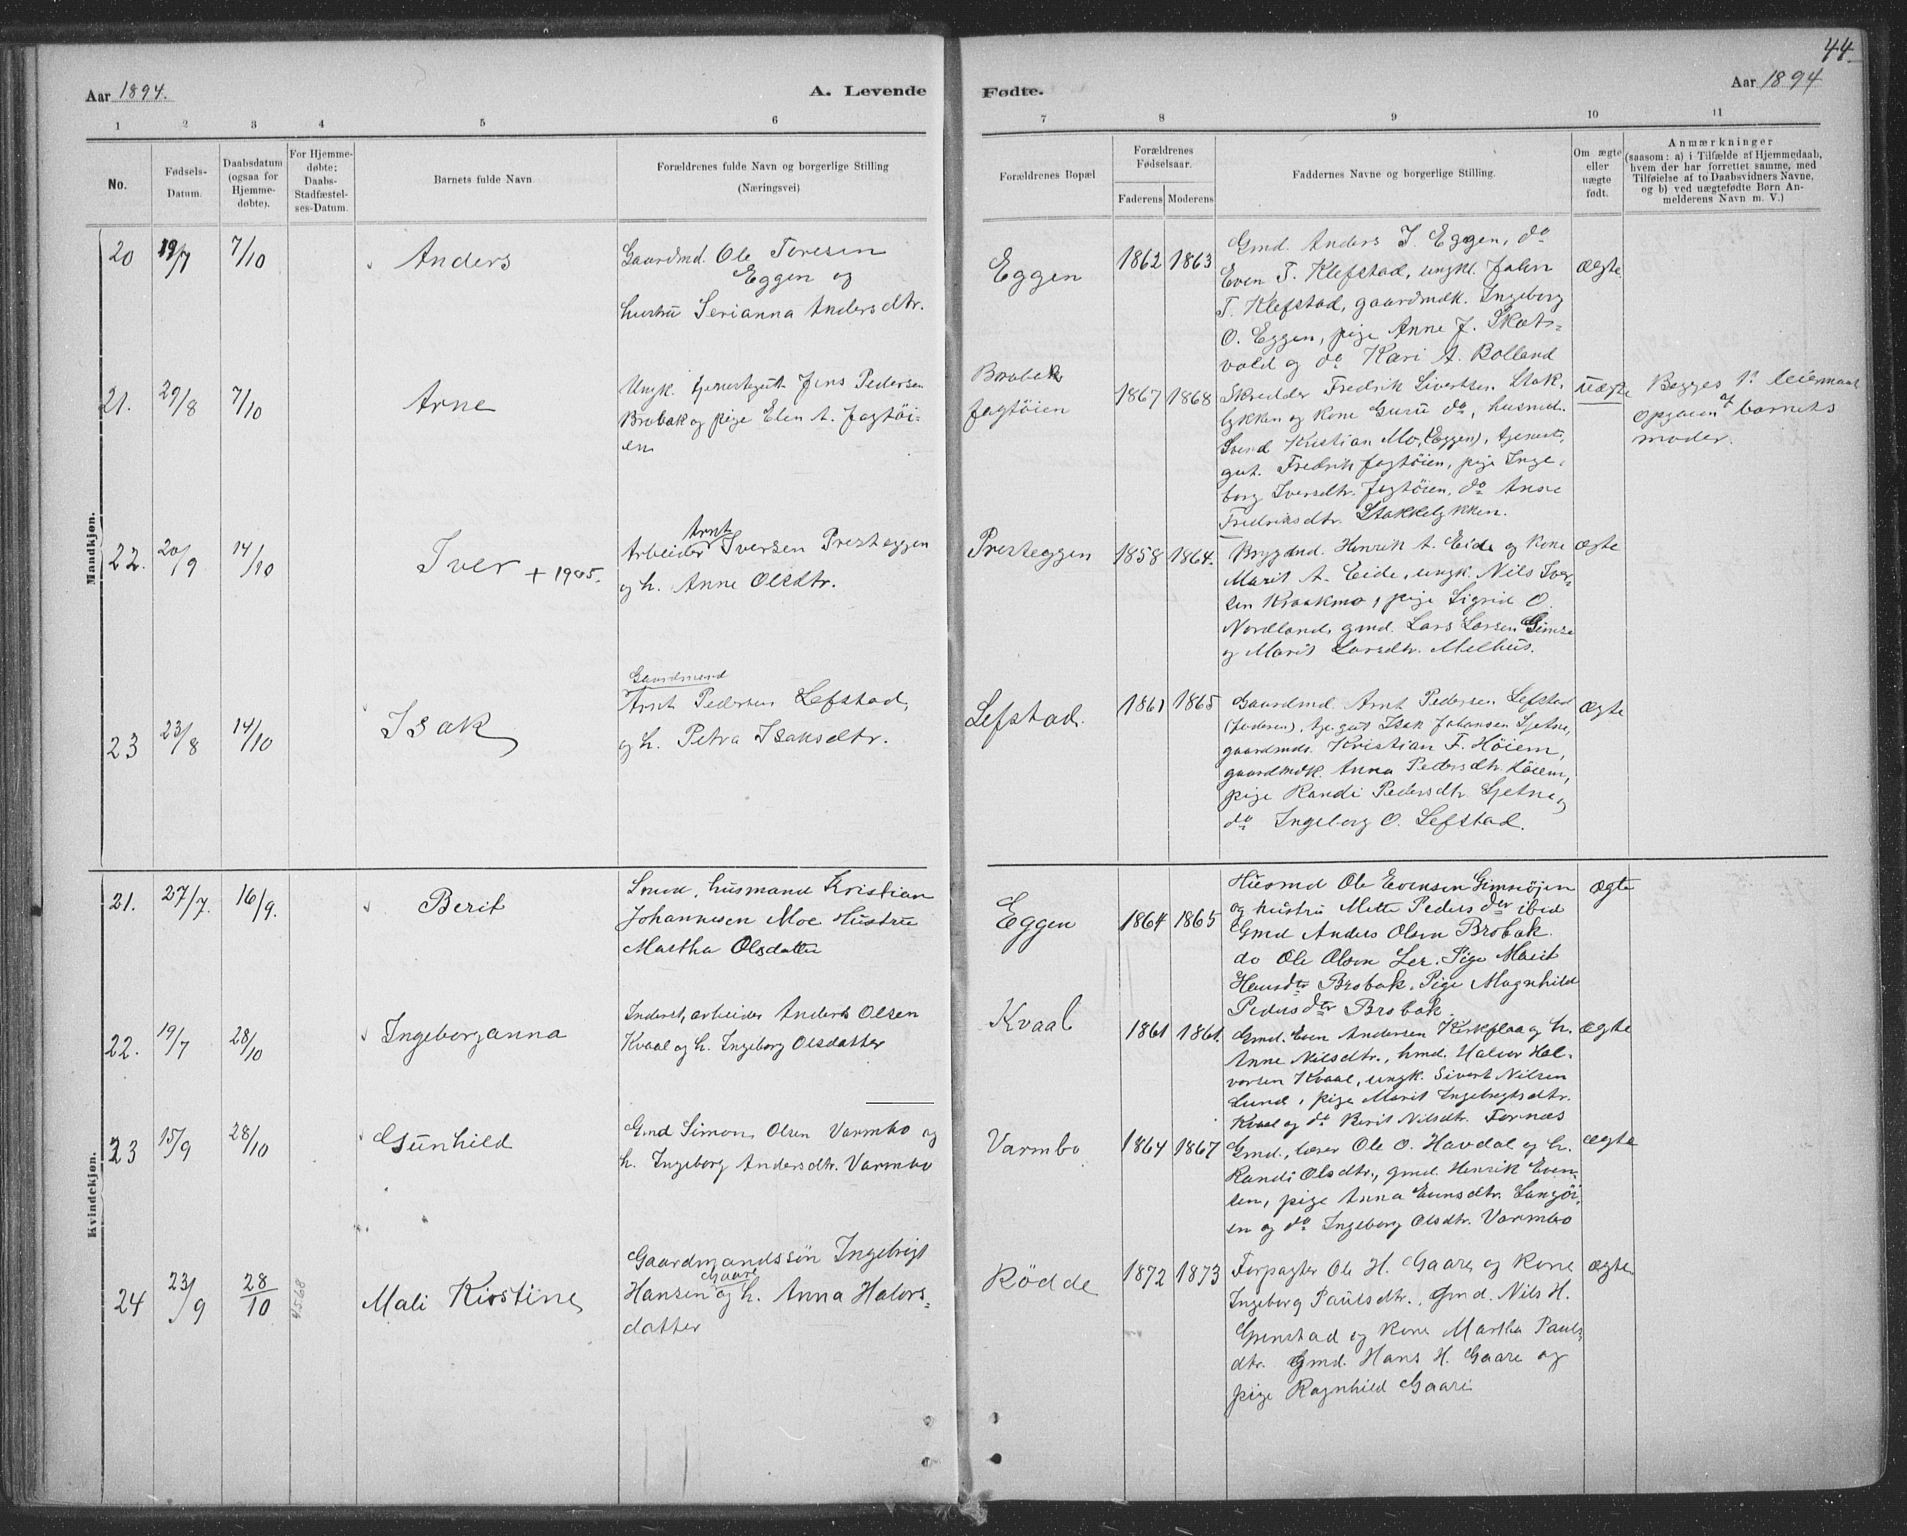 44.
Aar 1894. A. Levende Fødte. Aar 1894
1 2 3 4 5 6 7 8 9 10 11
No.
Fødsels-
Datum.
Daabsdatum
(ogsaa for
Hjemme-
døbte).
For Hjemme-
døbte;
Daabs-
Stadfæstel-
ses-Datum.
Barnets fulde Navn
Forældrenes fulde Navn og borgerlige Stilling
(Næringsvei)
Forældrenes Bopæl
Forældrenes
Fødselsaar.
Faderens Moderens
Faddernes Navne og borgerlige Stilling.
Om ægte
eller
uægte
født.
Anmærkninger
(saasom: a) i Tilfælde af Hjemmedaab,
hvem der har forrettet samme, med
Tilføielse af to Daabsvidners Navne,
og b) ved uægtefødte Børn An-
melderens Navn m. V.)
Mandkjøn.
20 19/7 7/10 Anders
Gaardmd. Ole Toresen
Eggen og
hustru Serianna Andersdtr.
Eggen 1862 1863
Gmd. Anders J. Eggen, do
Even T. Klefstad, ungk. John
T. Klefstad, gaardmdk. Ingeborg
O. Eggen, pige Anne J. Skøts-
vold og do Kari A. Bolland
ægte
21. 29/8 7/10 Arne
Ungk. tjenestegut Jens Pedersen
Brobak og pige Elen A. Jagtöi-
en
Brobak
Jagtöien 1867 1868
Skredder Fredrik Sivertsen Stak-
lykken og kone Guru do, husmd.
Svend Kristian Mo, (Eggen), tjeneste-
gut. Fredrik Jagtöien, pige Inge-
borg Iversdtr. Jagtöien, do Anne
Fredriksdtr. Stakkelykken.
uægte
Begges 1ste leiermaal
opgaven af barnets
moder.
22. 20/9 14/10 Iver + 1905.
Arnt
Arbeider Iversen Presteggen
og h. Anne Olsdtr.
Presteggen 1858 1864.
Brygmd. Henrik A. Eide og kone
Marit A. Eide, ungk. Nils Iver-
sen Kraakmo, pige Sigrid O.
Nordland, gmd. Lars Larsen Gimse
og Marit Larsdtr. Melhus.
ægte
23 23/8 14/10 Isak
Gaardmand
Arnt Pedersen Lefstad,
og h. Petra Isaksdtr.
Lefstad. 1861 1865
Gaardmd. Arnt Pedersen Lefstad
(faderen), tje.gut Isak Johansen Sjetne,
gaardmds. Kristian F. Höiem,
gaardmdk. Anna Pedersdtr. Höiem,
pige Randi Pedersdtr. Sjetne og
do Ingeborg O. Lefstad.
ægte
Kvindekjøn.
21. 27/7. 16/9. Berit
Smed, husmand Kristian
Johannesen Moe Hustru
Martha Olsdatter
Eggen 1864 1865
Husmd Ole Evensen Gimsöjen
og hustru Mette Pedersder ibid
Gmd Anders Olsen Brobak.
do Ole Olsen Ler. Pige Marit
Hansdtr Brobak. Pige Magnhild
Pedersdtr Brobak.
ægte
22. 19/7 28/10 Ingeborganna
Inderst, arbeider Anders Olsen
Kvaal og h. Ingeborg Olsdatter
Kvaal 1861 1861.
Gmd. Even Andersen Kirkflaa og h.
Anne Nilsdtr., hmd. Halvor Hal-
vorsen Kvaal, ungk. Sivert Nilsen
Lund, pige Marit Ingebrigtsdtr.
Kvaal og do Berit Nilsdtr. Fornæs
ægte
23 15/9 28/10 Gunhild
Gmd Simon Olsen Varmbo og
h. Ingeborg Andersdtr. Varmbo
Varmbo 1864 1867
Gmd., lærer Ole O. Havdal og h.
Randi Olsdtr., gmd. Henrik Even-
sen, pige Anna Evensdtr. Langöi-
en og do Ingeborg Olsdtr. Varmbo
ægte
24 23/9 28/10 4568 Mali Kirstine
Gaardmandssön Ingebrigt
Gaare
Hansen og h. Anna Halvors-
datter
Rödde 1872 1873
Forpagter Ole H. Gaare og kone
Ingeborg Paulsdtr., Gmd. Nils H.
Grinstad og kone Martha Pauls-
dtr. Gmd. Hans H. Gaare og
pige Ragnhild Gaare
ægte